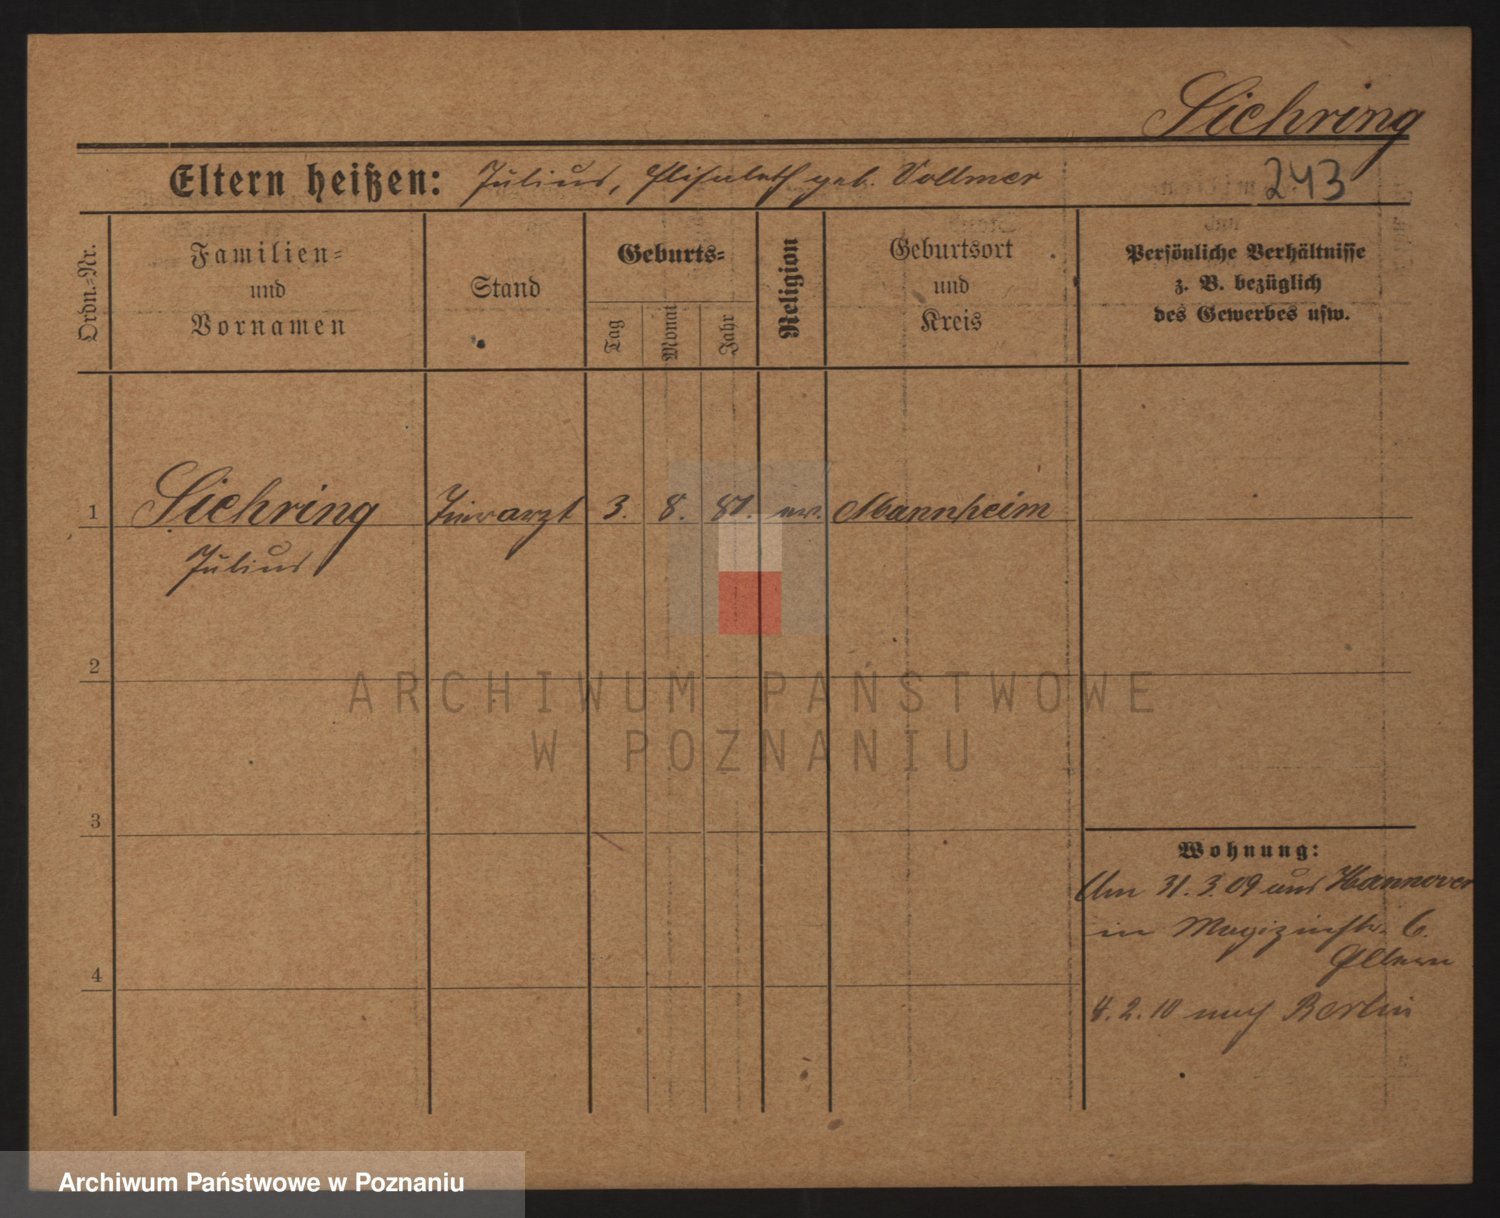 Siehring
Eltern heißen: Julius, Elisabeth geb. Vollmer
243
Ordn.-Nr.
Familien-
und
Vornamen
Stand
Geburts-
Tag
Monat
Jahr
Religion
Geburtsort
und
Kreis
Persönliche Verhältnisse
z. B. bezüglich
des Gewerbes usw.
1 Siehring Tierarzt 3. 8. 81. ev. Mannheim
Julius
2
ARCHIWUM PAŃSTWOWE
W POZNANIU
3
Wohnung:
Am 31.3.09 aus Hannover
in Magazinstr. 6.
Eltern
4
4.2.10 nach Berlin
Archiwum Państwowe w Poznaniu